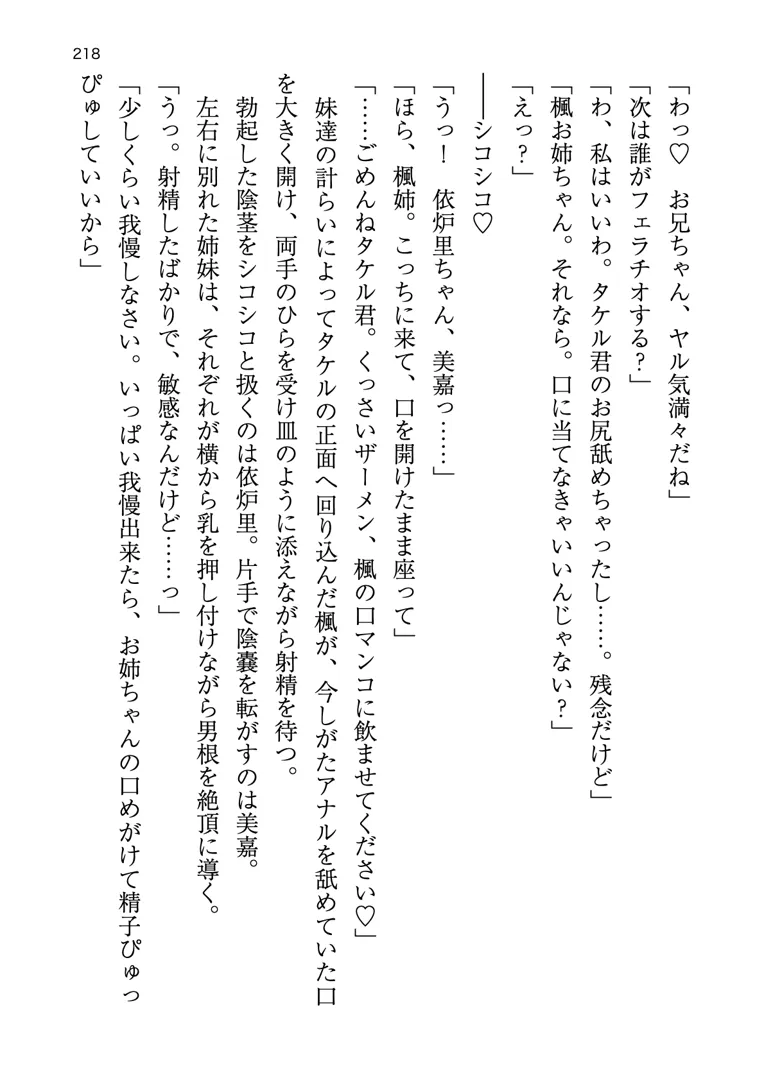 218
「わっ♡　お兄ちゃん、ヤル気満々だね」
「次は誰がフェラチオする？」
「わ、私はいいわ。タケル君のお尻舐めちゃったし……。残念だけど」
「楓お姉ちゃん。それなら。口に当てなきゃいいんじゃない？」
「えっ？」
――シコシコ♡
「うっ！　依炉里ちゃん、美嘉っ……」
「ほら、楓姉。こっちに来て、口を開けたまま座って」
「……ごめんねタケル君。くっさいザーメン、楓の口マンコに飲ませてください♡」
妹達の計らいによってタケルの正面へ回り込んだ楓が、今しがたアナルを舐めていた口
を大きく開け、両手のひらを受け皿のように添えながら射精を待つ。
勃起した陰茎をシコシコと扱くのは依炉里。片手で陰嚢を転がすのは美嘉。
左右に別れた姉妹は、それぞれが横から乳を押し付けながら男根を絶頂に導く。
「うっ。射精したばかりで、敏感なんだけど……っ」
「少しくらい我慢しなさい。いっぱい我慢出来たら、お姉ちゃんの口めがけて精子ぴゅっ
ぴゅしていいから」